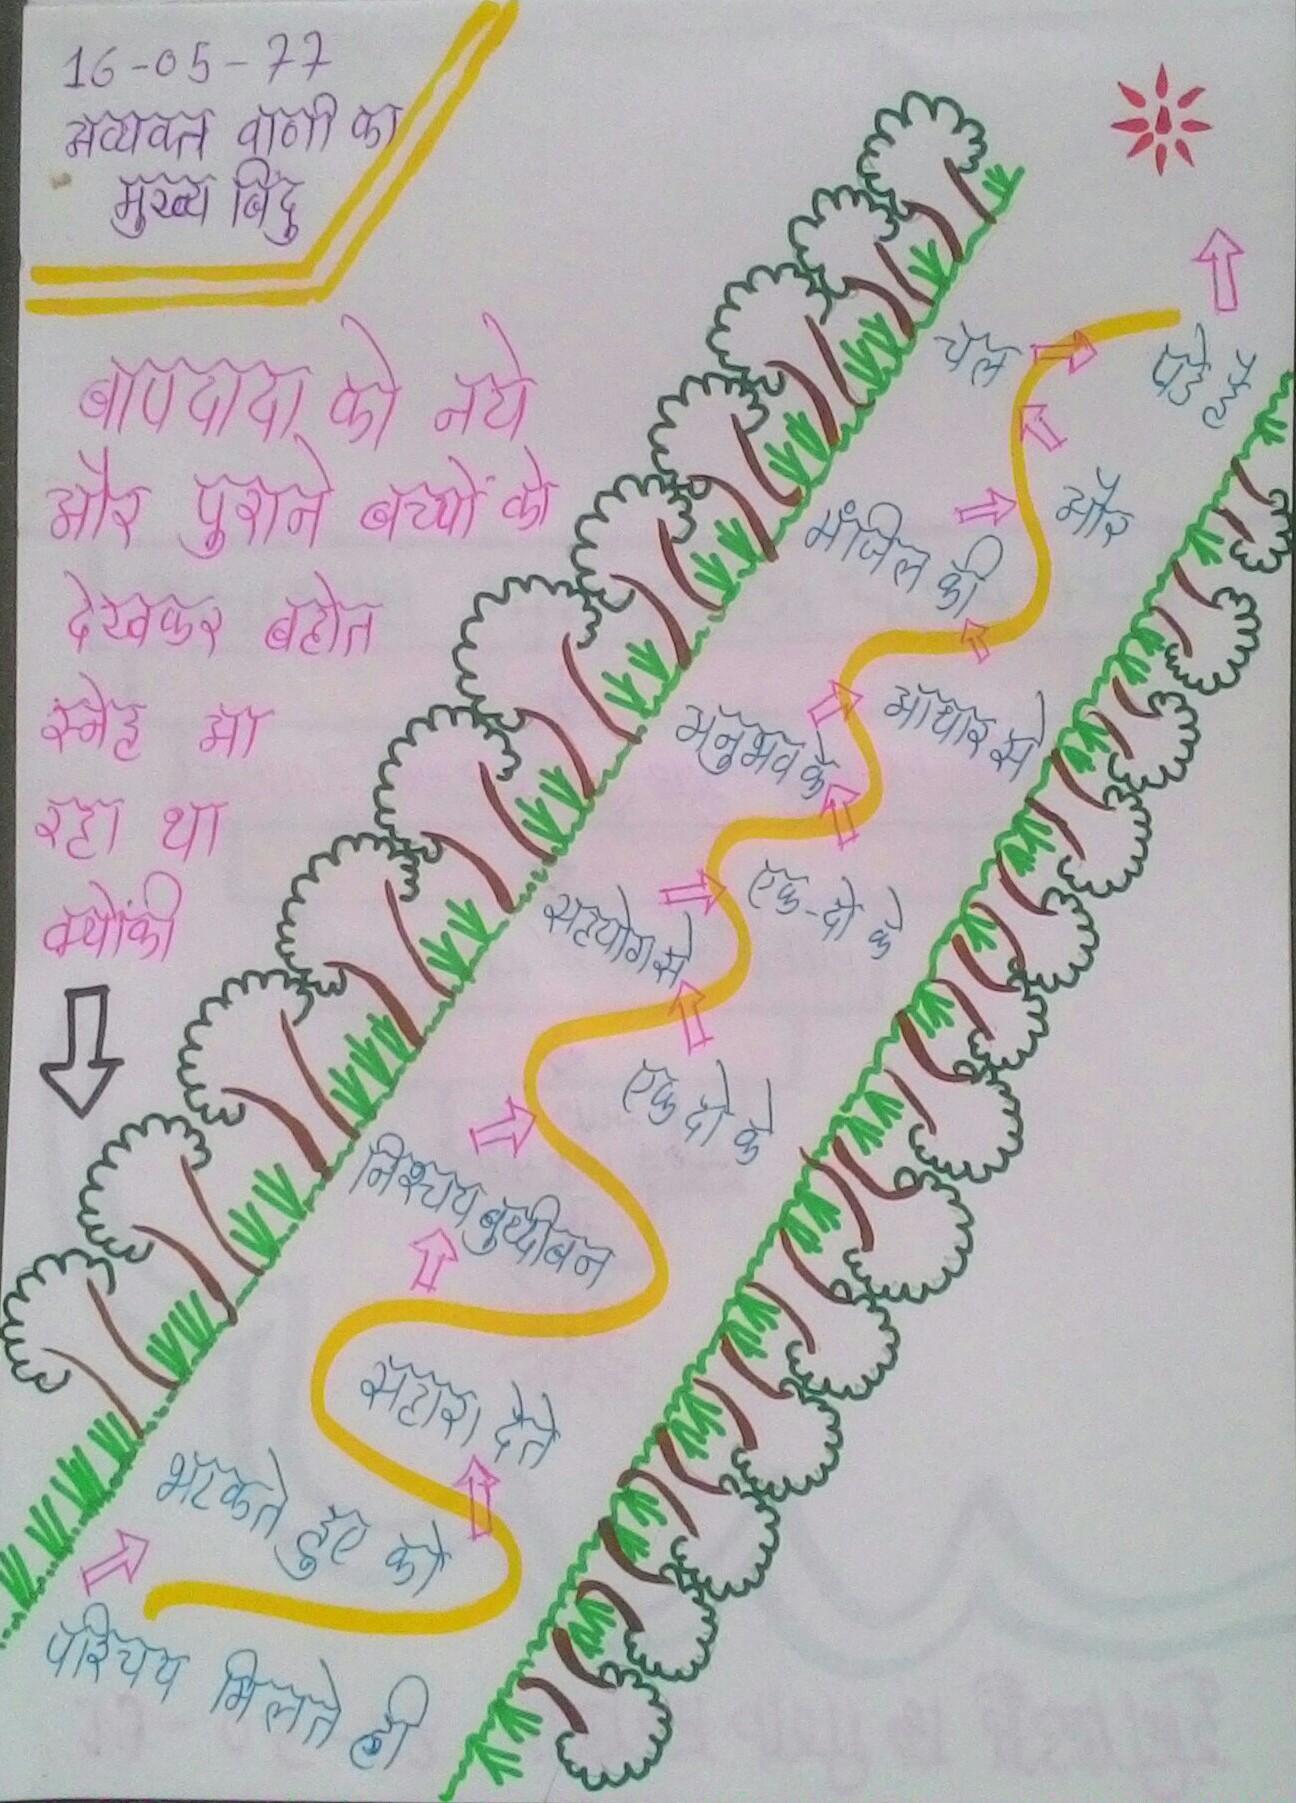 16-05-77
अव्यक्त वाणी का
मुख्य बिंदु
बापदादा को नये
और पुराने बच्चों को
देखकर बहोत
स्नेह आ
रहा था
क्योंकी
परिचय मिलते ही
भटकते हुए को
सहारा देते
निश्चय बुध्दीबन
एक दो के
सहयोग से
एक-दो के
अनुभव के
आधार से
मंजिल की
और
चल
पड़े हैं